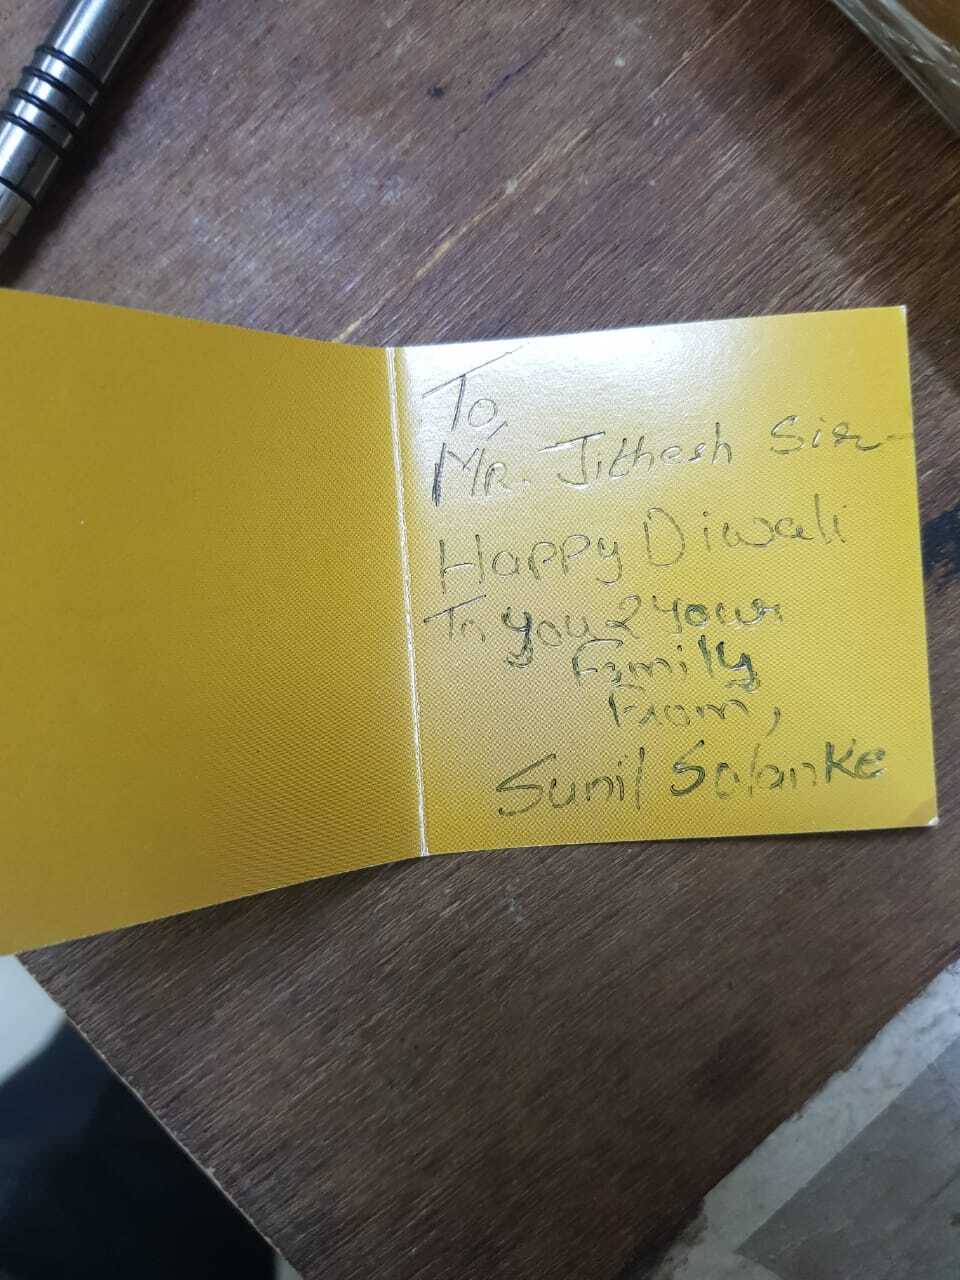 To,
Mr. Jithesh Sir
Happy Diwali
To you & your
Family
From,
Sunil Solanke